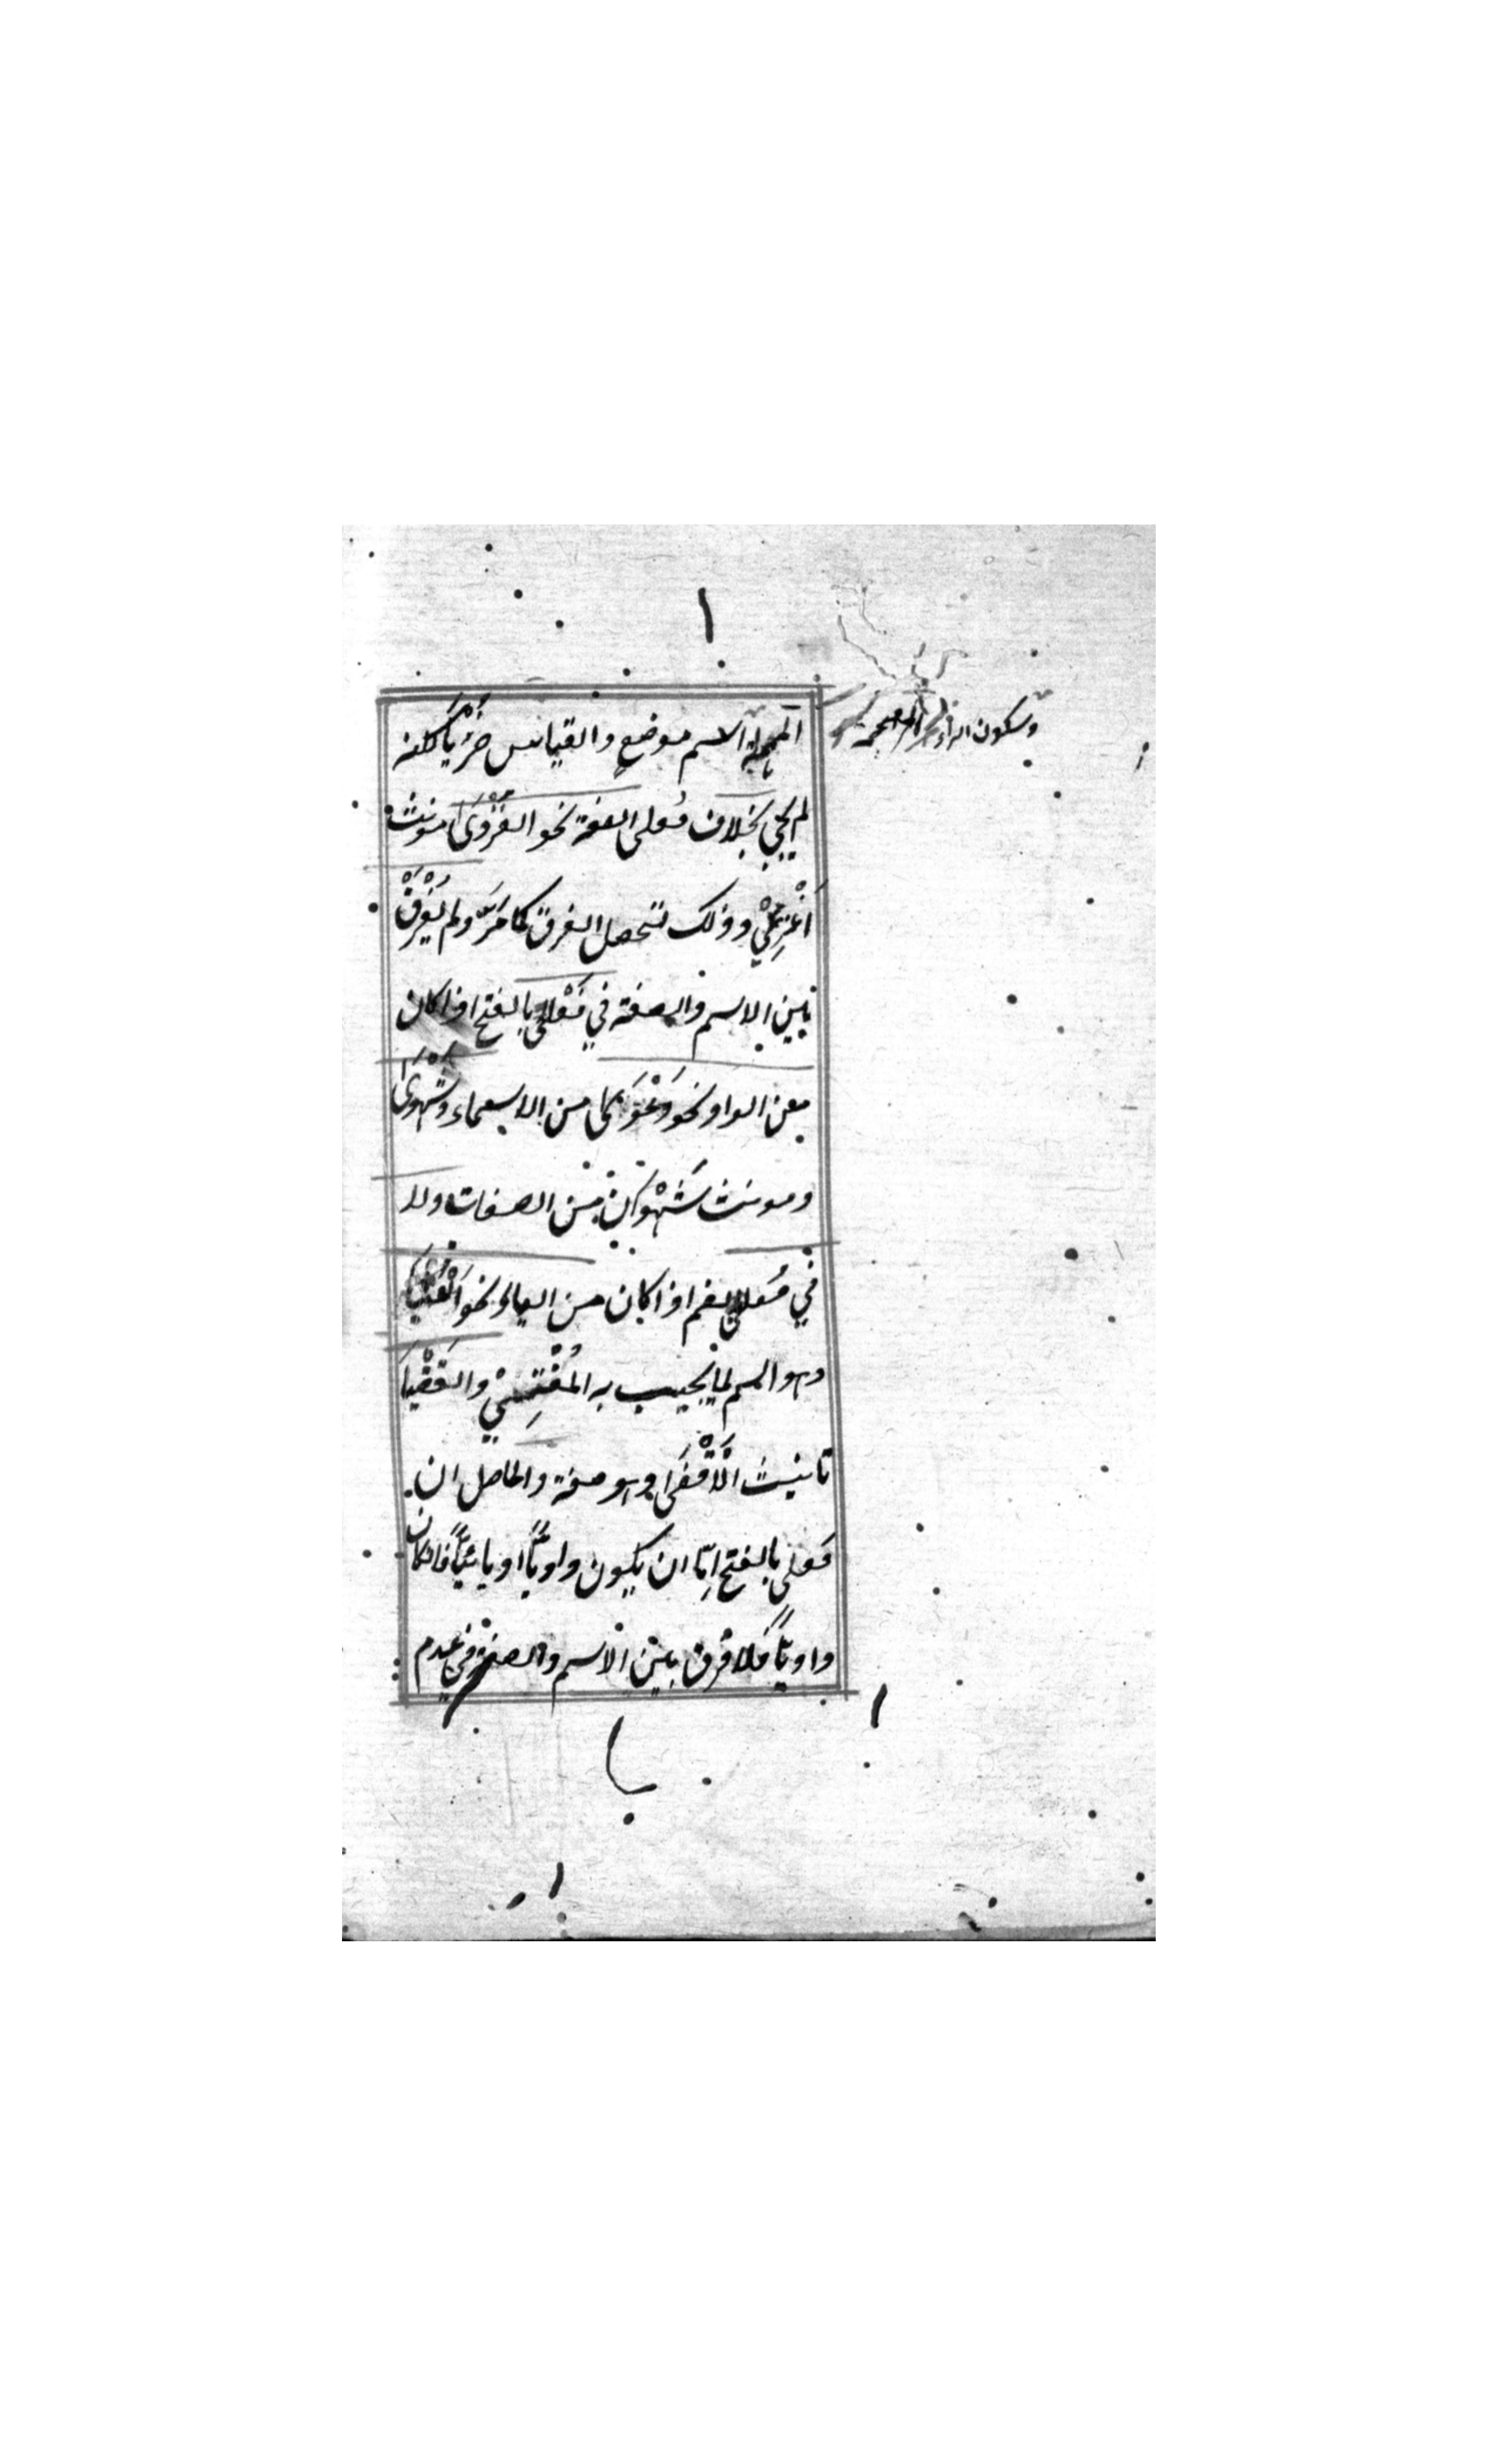 المهملة لاسم موضع والقياس حُزْيَا لكنه
لم يجئ بخلاف فُعلى الصفة نحو الغُزْوَى مونث
اَغْزى وذلك ليحصل الفرق كما مَرَّ ولم يُفْرَقْ
بين الاسم والصفة في فَعْلى بالفتح اذا كان
من الواو نحو دَعْوَى من الاسماء وشَهْوَى
ومونث شَهْوَان من الصفات ولا
في فُعلى بالضم اذا كان من الياء نحو الْفُتْيَا
وهو اسم لما يجيب به المُفْتِيْ والقُضْيَا
تانيث الْاَقْضَى وهو صفة والحاصل ان
فَعلى بالفتح اِمّا ان يكون واويًّا او يائيًّا فان كان
واويًّا فلا فرق بين الاسم والصفة في عدم
وسكون الزاء المعجمة